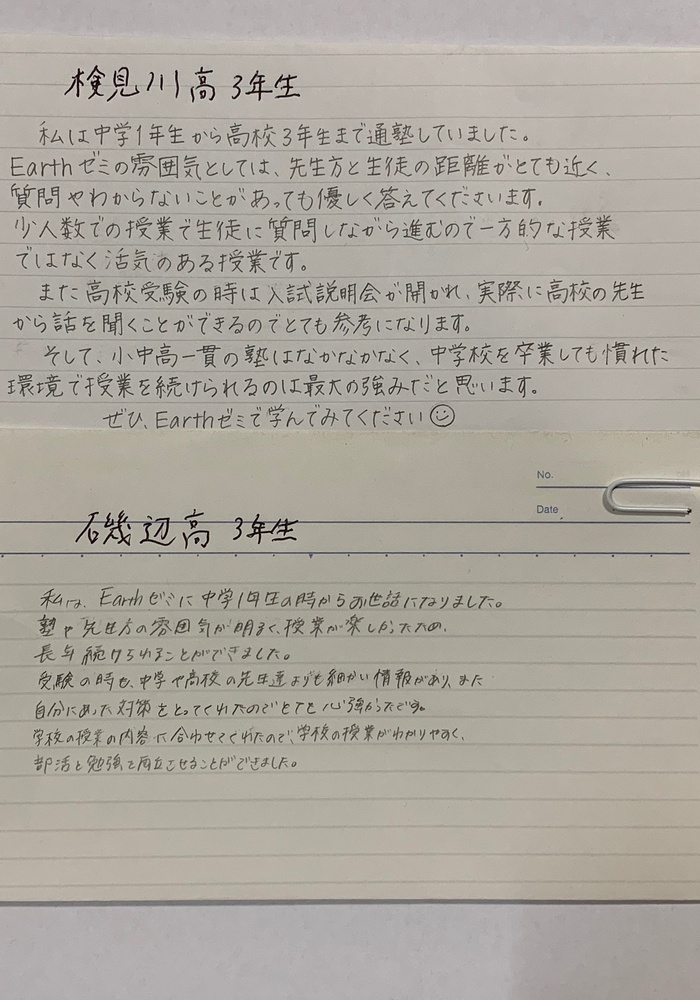 検見川高 3年生
私は中学1年生から高校3年生まで通塾していました。
Earthゼミの雰囲気としては、先生方と生徒の距離がとても近く、
質問やわからないことがあっても優しく答えてくださいます。
少人数での授業で生徒に質問しながら進むので一方的な授業
ではなく活気のある授業です。
また高校受験の時は入試説明会が開かれ、実際に高校の先生
から話を聞くことができるのでとても参考になります。
そして、小中高一貫の塾はなかなかなく、中学校を卒業しても慣れた
環境で授業を続けられるのは最大の強みだと思います。
ぜひ、Earthゼミで学んでみてください☺
No.
Date
磯辺高 3年生
私は、Earthゼミに中学1年生の時からお世話になりました。
塾や先生方の雰囲気が明るく、授業が楽しかったため、
長年続けられることができました。
受験の時も、中学や高校の先生達よりも細かい情報があり、また
自分にあった対策をとってくれたのでとても心強かったです。
学校の授業の内容に合わせてくれたので、学校の授業がわかりやすく、
部活と勉強を両立させることができました。